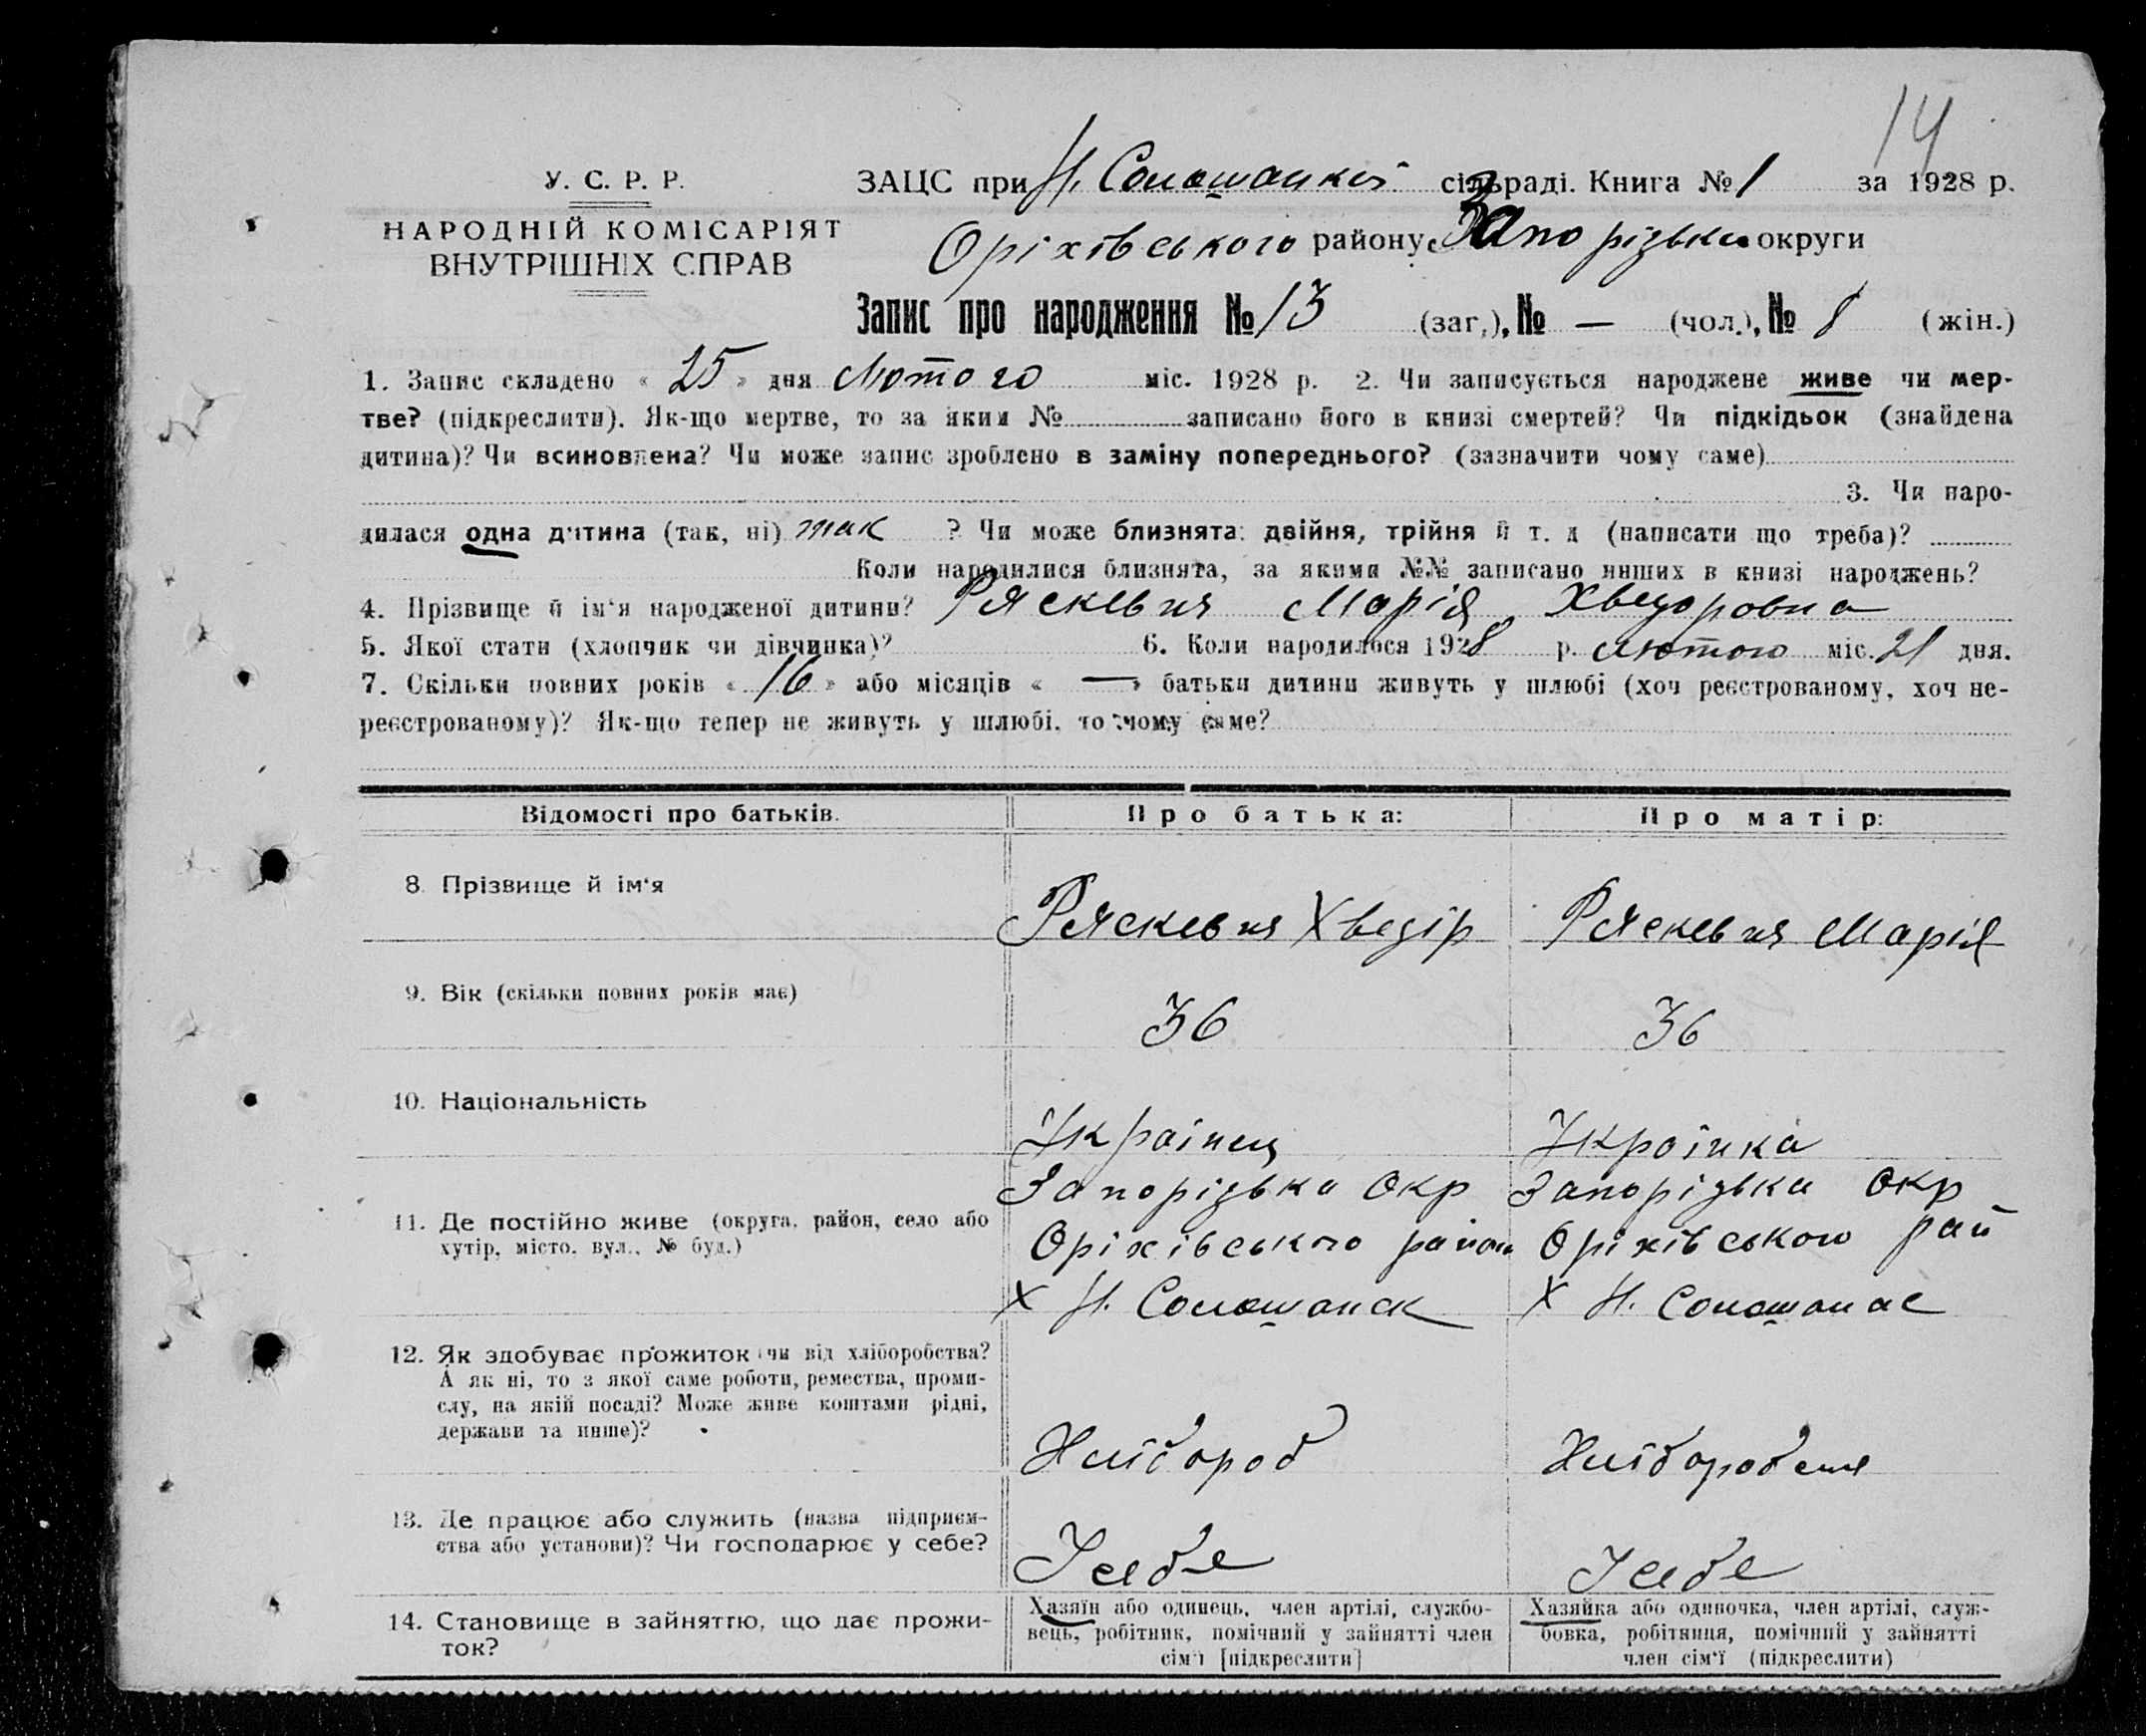 14
У. С. Р. Р.
НАРОДНІЙ КОМІСАРІЯТ
ВНУТРІШНІХ СПРАВ
ЗАЦС при Н. Солошанкій сільраді. Книга № 1 за 1928 р.
Оріхівського району, Запорізька округи
Запис про народження № 13 (заг.), № — (чол.), № 8 (жін.)
1. Запис складено « 25 » дня Лютого міс. 1928 р. 2. Чи записується народжене живе чи мер-
тве? (підкреслити). Як-що мертве, то за яким № записано його в книзі смертей? Чи підкідьок (знайдена
дитина)? Чи всиновлена? Чи може запис зроблено в заміну попереднього? (зазначити чому саме)
3. Чи наро-
дилася одна дитина (так, ні) так ? Чи може близнята: двійня, трійня й т. д (написати що треба)?
Коли народилися близнята, за якими №№ записано инших в книзі народжень?
4. Прізвище й ім‘я народженої дитини? Марія Хведоровна
5. Якої стати (хлопчик чи дівчинка)? 6. Коли народилося 1928 р. лютого міс. 21 дня.
7. Скільки повних років « 16 » або місяців « — » батьки дитини живуть у шлюбі (хоч реєстрованому, хоч не-
реєстрованому)? Як-що тепер не живуть у шлюбі, то чому саме?
Відомості про батьків.
Про батька:
Про матір:
8. Прізвище й ім‘я
Хведір
Марія
9. Вік (скільки повних років має)
36
36
10. Національність
Українец
Українка
11. Де постійно живе (округа, район, село або
хутір, місто, вул., № буд.)
Запорізька Окр
Оріхівського район
Х Н. Солошанск
Запорізька Окр
Оріхівського рай
Х Н. Солошанс
12. Як здобуває прожиток (чи від хліборобства?
А як ні, то з якої саме роботи, ремества, проми-
слу, на якій посаді? Може живе коштами рідні,
держави та инше)?
Хлібороб
13. Де працює або служить (назва підприєм-
ства або установи)? Чи господарює у себе?
У себе
У себе
14. Становище в зайняттю, що дає прожи-
ток?
Хазяїн або одинець, член артілі, службо-
вець, робітник, помічний у зайнятті член
сім‘ї [підкреслити]
Хазяйка або одиночка, член артілі, служ-
бовка, робітниця, помічний у зайнятті
член сім‘ї (підкреслити)